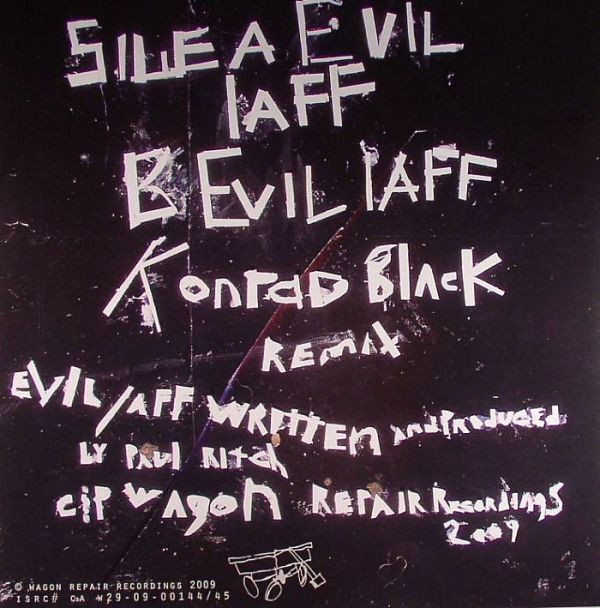 SIDE A EVIL
LAFF
B EVIL LAFF
Konrad Black
REMIX
EVIL LAFF WRITTEN and PRODUCED
by PAUL RITCH
C+P WAGON REPAIR Recordings
2009
© WAGON REPAIR RECORDINGS 2009
ISRC# CA W29-09-00144/45